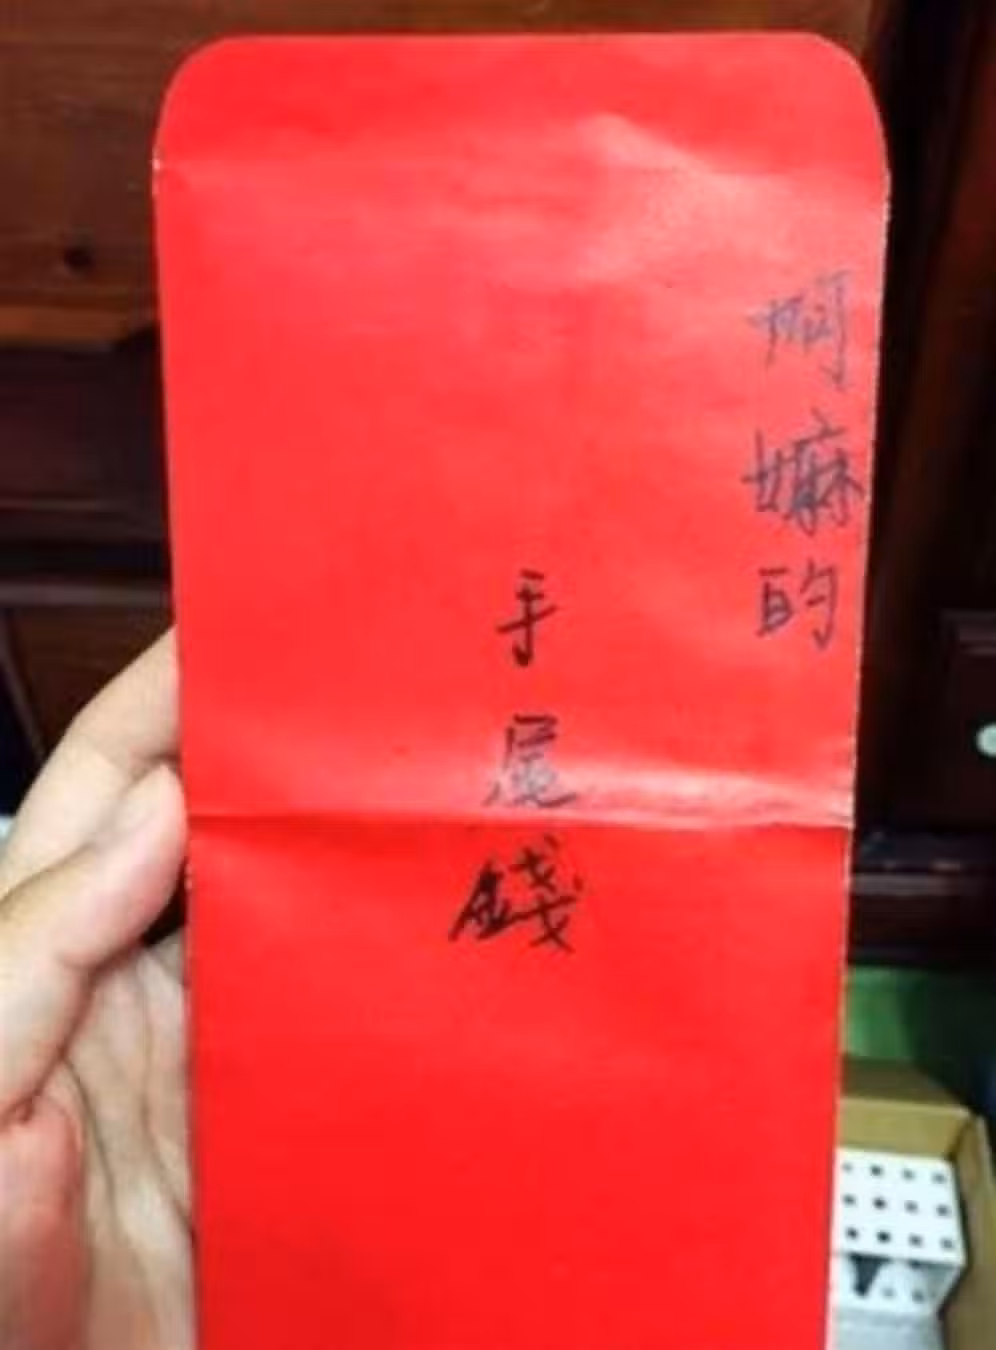 婀嬤的
手尾錢